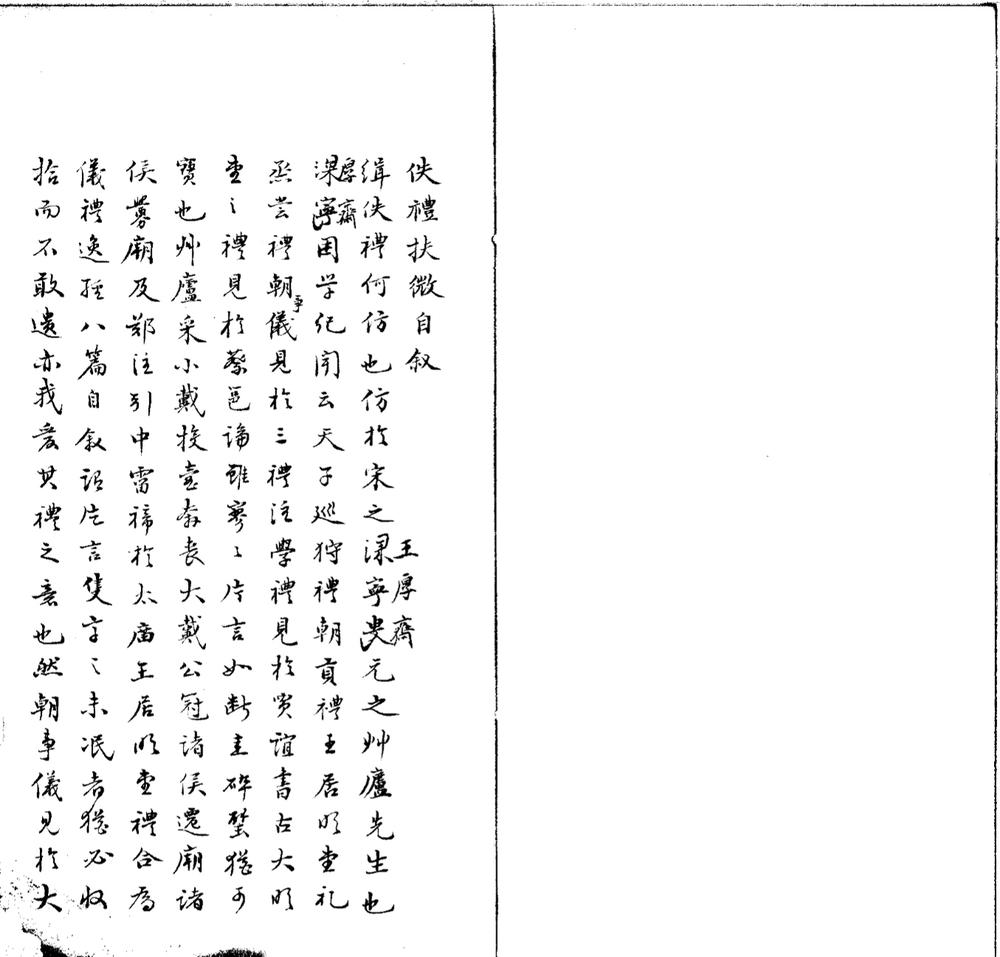 佚禮扶微自叙
王厚齋
緝佚禮何仿也仿於宋之深寧叟元之艸廬先生也
厚齋
深寧困学纪闻云天子巡狩禮朝貢禮王居明堂礼
烝嘗禮朝事儀見於三禮注學禮見於賈誼書古大明
堂之禮見於蔡邕論雖寥〻片言如断圭碎璧猶可
寶也艸廬采小戴投壺奔丧大戴公冠諸侯遷廟諸
侯釁廟及郑注引中霤禘於太廟王居明堂禮合爲
儀禮逸經八篇自叙謂片言隻字之未泯者猶必收
拾而不敢遺亦我爱其禮之意也然朝事儀見於大